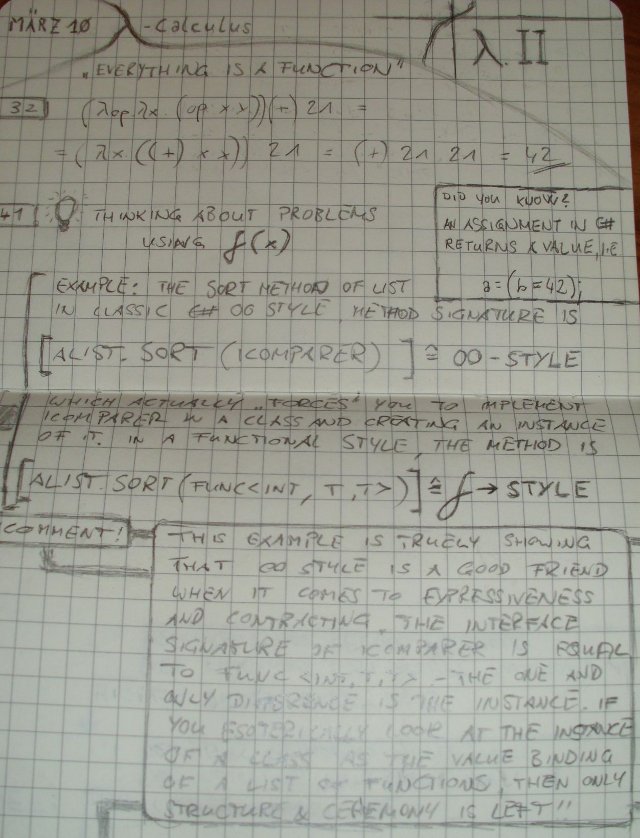 MÄRZ 10 λ - Calculus
λ. II
„EVERYTHING IS A FUNCTION"
32 (λop λx. (op x x))(+) 21 =
= (λx ((+) x x)) 21 = (+) 21 21 = 42
41 THINKING ABOUT PROBLEMS
USING f(x)
DID YOU KNOW?
AN ASSIGNMENT IN C#
RETURNS A VALUE, I.E
a = (b = 42);
EXAMPLE: THE SORT METHOD OF LIST
IN CLASSIC C# OO STYLE, METHOD SIGNATURE IS
[ALIST.SORT (ICOMPARER)] ≙ OO-STYLE
WHICH ACTUALLY „FORCES" YOU TO IMPLEMENT
ICOMPARER IN A CLASS AND CREATING AN INSTANCE
OF IT. IN A FUNCTIONAL STYLE, THE METHOD IS
[ALIST.SORT(FUNC<INT, T,T>)] ≙ f → STYLE
COMMENT!
THIS EXAMPLE IS TRUELY SHOWING
THAT OO STYLE IS A GOOD FRIEND
WHEN IT COMES TO EXPRESSIVENESS
AND CONTRACTING. THE INTERFACE
SIGNATURE OF ICOMPARER IS EQUAL
TO FUNC<INT,T,T> - THE ONE AND
ONLY DIFFERENCE IS THE INSTANCE. IF
YOU ESOTERICALLY LOOK AT THE INSTANCE
OF A CLASS AS THE VALUE BINDING
OF A LIST OF FUNCTIONS, THEN ONLY
STRUCTURE & CEREMONY IS LEFT"